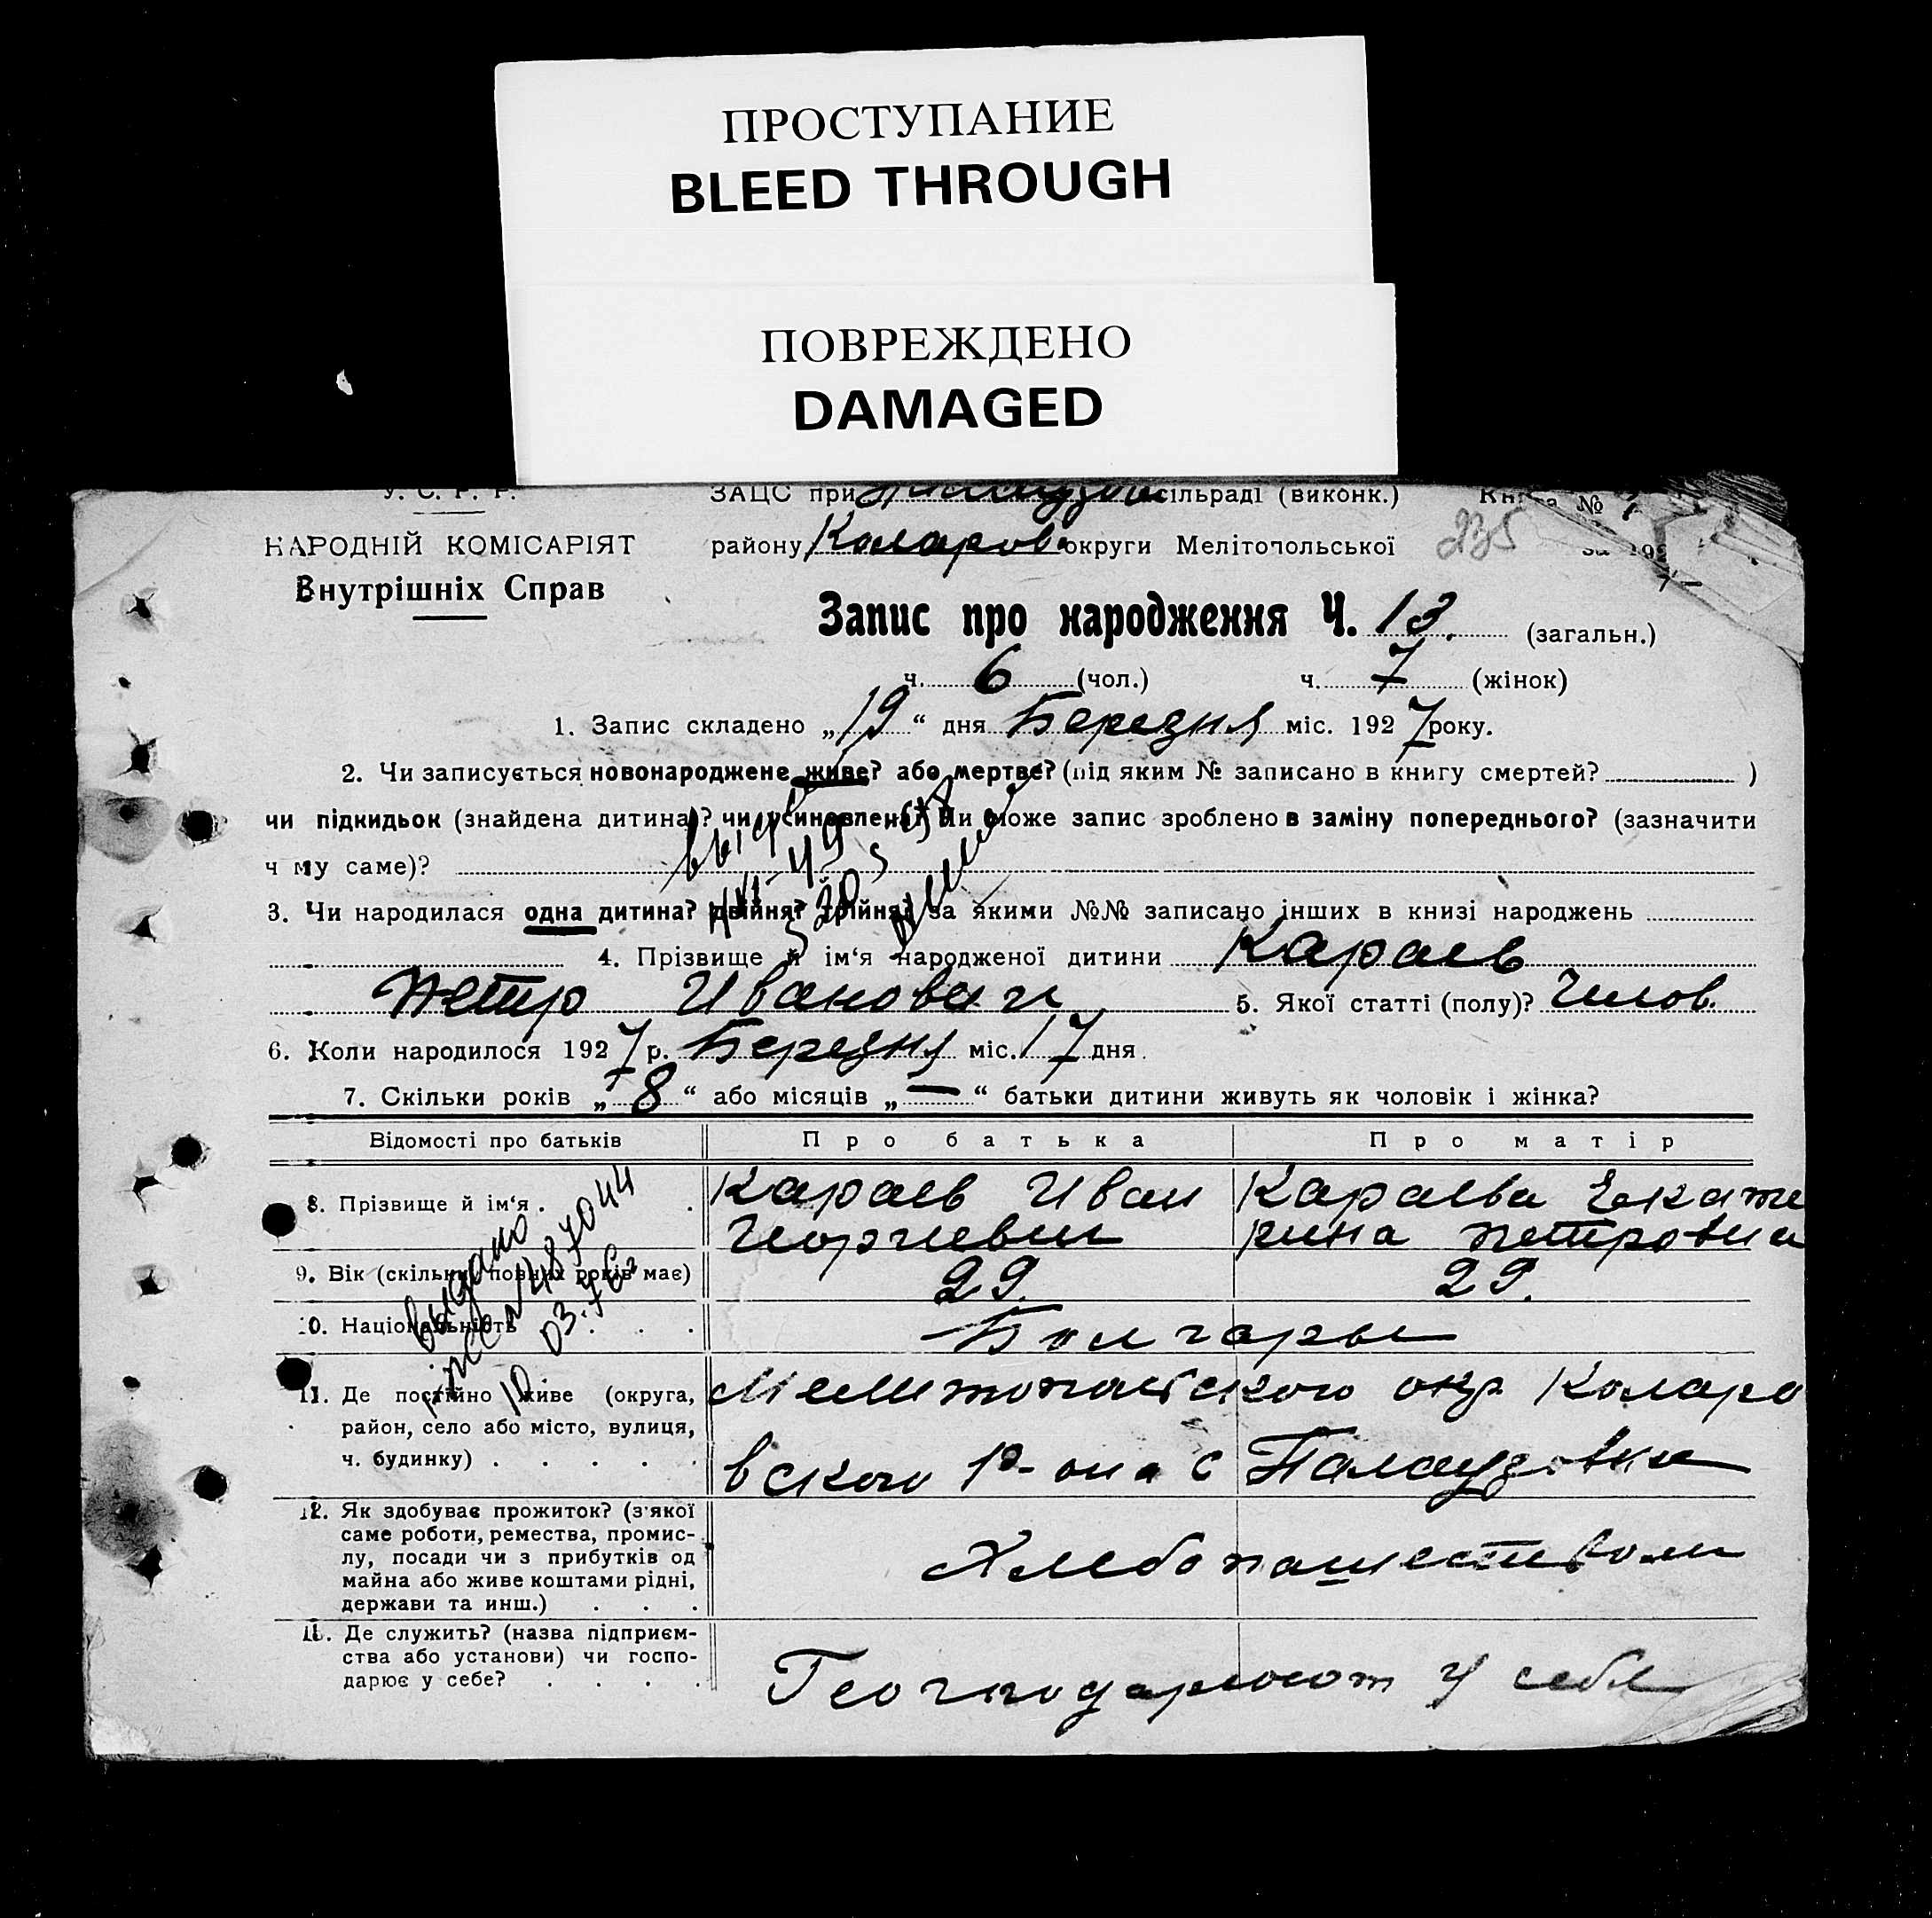 ПРОСТУПАНИЕ
BLEED THROUGH
ПОВРЕЖДЕНО
DAMAGED
У. С. Р. Р.
ЗАЦС при сільраді (виконк.) №
НАРОДНІЙ КОМІСАРІЯТ
району Коларов округи Мелітопольської 235
Внутрішніх Справ
Запис про народження Ч. 13. (загальн.)
ч. 6 (чол.) ч. 7 (жінок)
1. Запис складено „19“ дня Березня міс. 1927 року.
2. Чи записується новонароджене живе? або мертве? (під яким № записано в книгу смертей? )
чи підкидьок (знайдена дитина)? чи усиновлена? Чи може запис зроблено в заміну попереднього? (зазначити
ч му саме)?
3. Чи народилася одна дитина? двійня? трійня? за якими №№ записано інших в книзі народжень
4. Прізвище й ім‘я народженої дитини Караев
Петр Иванович 5. Якої статті (полу)? Чилов.
6. Коли народилося 1927 р. Березня міс. 17 дня.
7. Скільки років „8“ або місяців „—“ батьки дитини живуть як чоловік і жінка?
Відомості про батьків Про батька Про матір
8. Прізвище й ім‘я . . Караев Иван Караева Екате
Георгиевич рина Петровна
9. Вік (скільки повних років має) 29. 29.
10. Національність . . . Болгары
11. Де постійно живе (округа, Мелитопольского окр Коларо
район, село або місто, вулиця,
ч. будинку) . . . . . вского р-она с Палаузовка
12. Як здобуває прожиток? (з'якої
саме роботи, ремества, промис-
лу, посади чи з прибутків од
майна або живе коштами рідні,
держави та инш.) . . .
Хлебопашеством
13. Де служить? (назва підприєм-
ства або установи) чи госпо-
дарює у себе? . . . .
Господарюют у себя
выдано
487044
10 03.76г